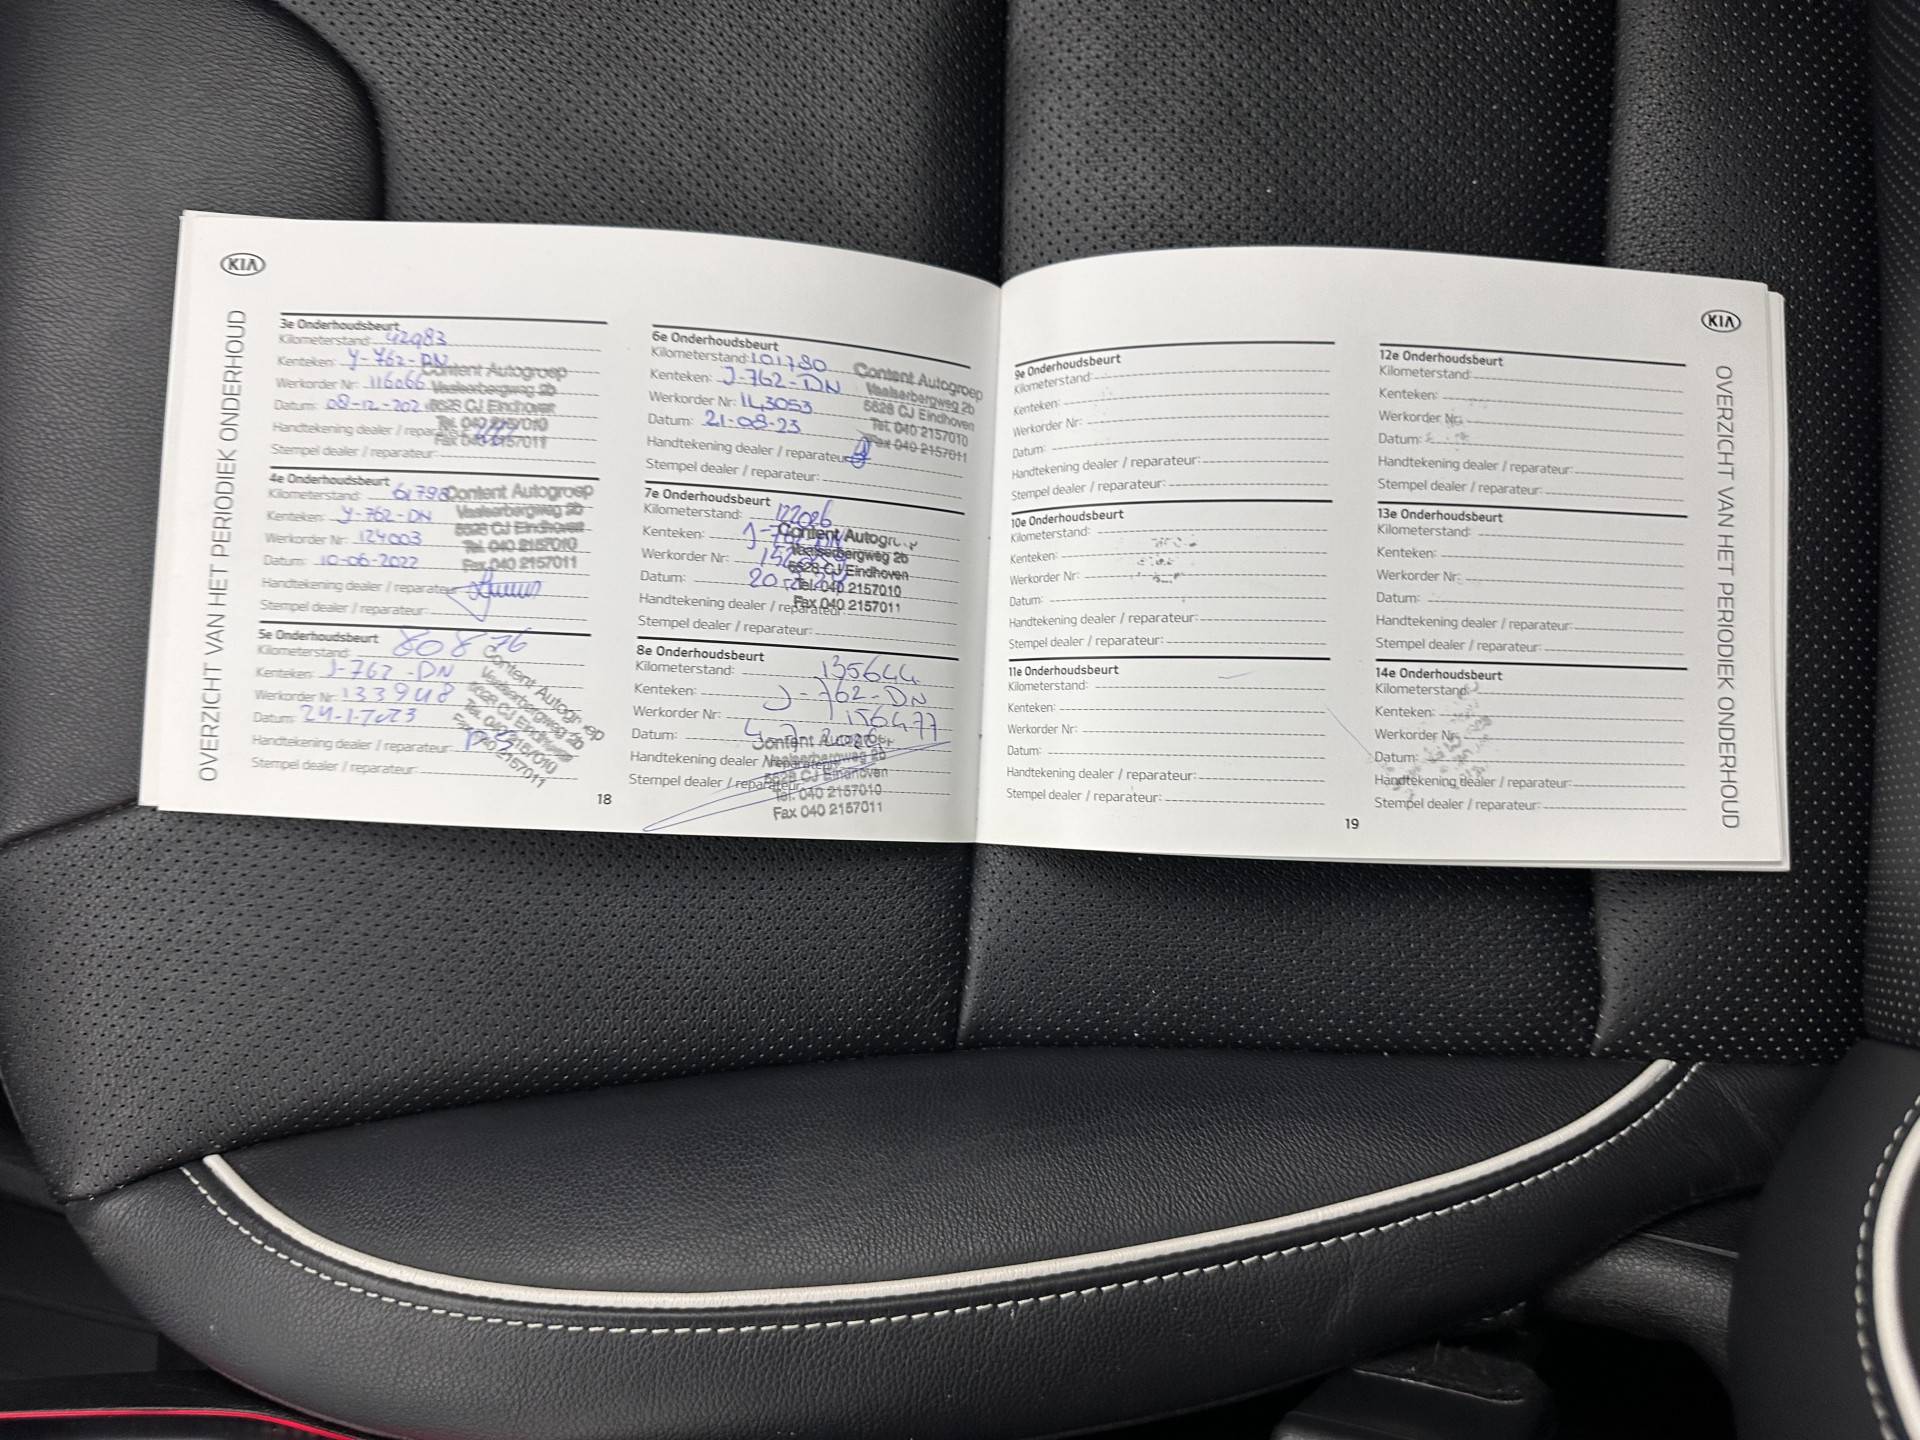 KIA
OVERZICHT VAN HET PERIODIEK ONDERHOUD
3e Onderhoudsbeurt
Kilometerstand: 42983
Kenteken: J-762-DN
Werkorder Nr: 116066
Datum: 08-12-202
Handtekening dealer / reparateur:
Stempel dealer / reparateur:
Content Autogroep
Vaalserbergweg 2b
5628 CJ Eindhoven
Tel. 040 2157010
Fax 040 2157011
4e Onderhoudsbeurt
Kilometerstand: 61798
Kenteken: J-762-DN
Werkorder Nr: 124003
Datum: 10-06-2022
Handtekening dealer / reparateur:
Stempel dealer / reparateur:
Content Autogroep
Vaalserbergweg 2b
5628 CJ Eindhoven
Tel. 040 2157010
Fax 040 2157011
5e Onderhoudsbeurt
Kilometerstand: 80876
Kenteken: J-762-DN
Werkorder Nr: 133948
Datum: 24-1-2023
Handtekening dealer / reparateur:
Stempel dealer / reparateur:
Content Autogroep
Vaalserbergweg 2b
5628 CJ Eindhoven
Tel. 040 2157010
Fax 040 2157011
6e Onderhoudsbeurt
Kilometerstand: 101780
Kenteken: J-762-DN
Werkorder Nr: 143053
Datum: 21-08-23
Handtekening dealer / reparateur:
Stempel dealer / reparateur:
Content Autogroep
Vaalserbergweg 2b
5628 CJ Eindhoven
Tel. 040 2157010
Fax 040 2157011
7e Onderhoudsbeurt
Kilometerstand: 122026
Kenteken: J-762-DN
Werkorder Nr:
Datum:
Handtekening dealer / reparateur:
Stempel dealer / reparateur:
Content Autogr
Vaalserbergweg 2b
5628 CJ Eindhoven
Tel. 040 2157010
Fax 040 2157011
8e Onderhoudsbeurt
Kilometerstand: 135644
Kenteken: J-762-DN
Werkorder Nr: 156477
Datum:
Handtekening dealer / reparateur:
Stempel dealer / reparateur:
Content Autogroep
Vaalserbergweg 2b
5628 CJ Eindhoven
Tel. 040 2157010
Fax 040 2157011
18
9e Onderhoudsbeurt
Kilometerstand:
Kenteken:
Werkorder Nr:
Datum:
Handtekening dealer / reparateur:
Stempel dealer / reparateur:
10e Onderhoudsbeurt
Kilometerstand:
Kenteken:
Werkorder Nr:
Datum:
Handtekening dealer / reparateur:
Stempel dealer / reparateur:
11e Onderhoudsbeurt
Kilometerstand:
Kenteken:
Werkorder Nr:
Datum:
Handtekening dealer / reparateur:
Stempel dealer / reparateur:
12e Onderhoudsbeurt
Kilometerstand:
Kenteken:
Werkorder Nr:
Datum:
Handtekening dealer / reparateur:
Stempel dealer / reparateur:
13e Onderhoudsbeurt
Kilometerstand:
Kenteken:
Werkorder Nr:
Datum:
Handtekening dealer / reparateur:
Stempel dealer / reparateur:
14e Onderhoudsbeurt
Kilometerstand:
Kenteken:
Werkorder Nr:
Datum:
Handtekening dealer / reparateur:
Stempel dealer / reparateur:
19
KIA
OVERZICHT VAN HET PERIODIEK ONDERHOUD